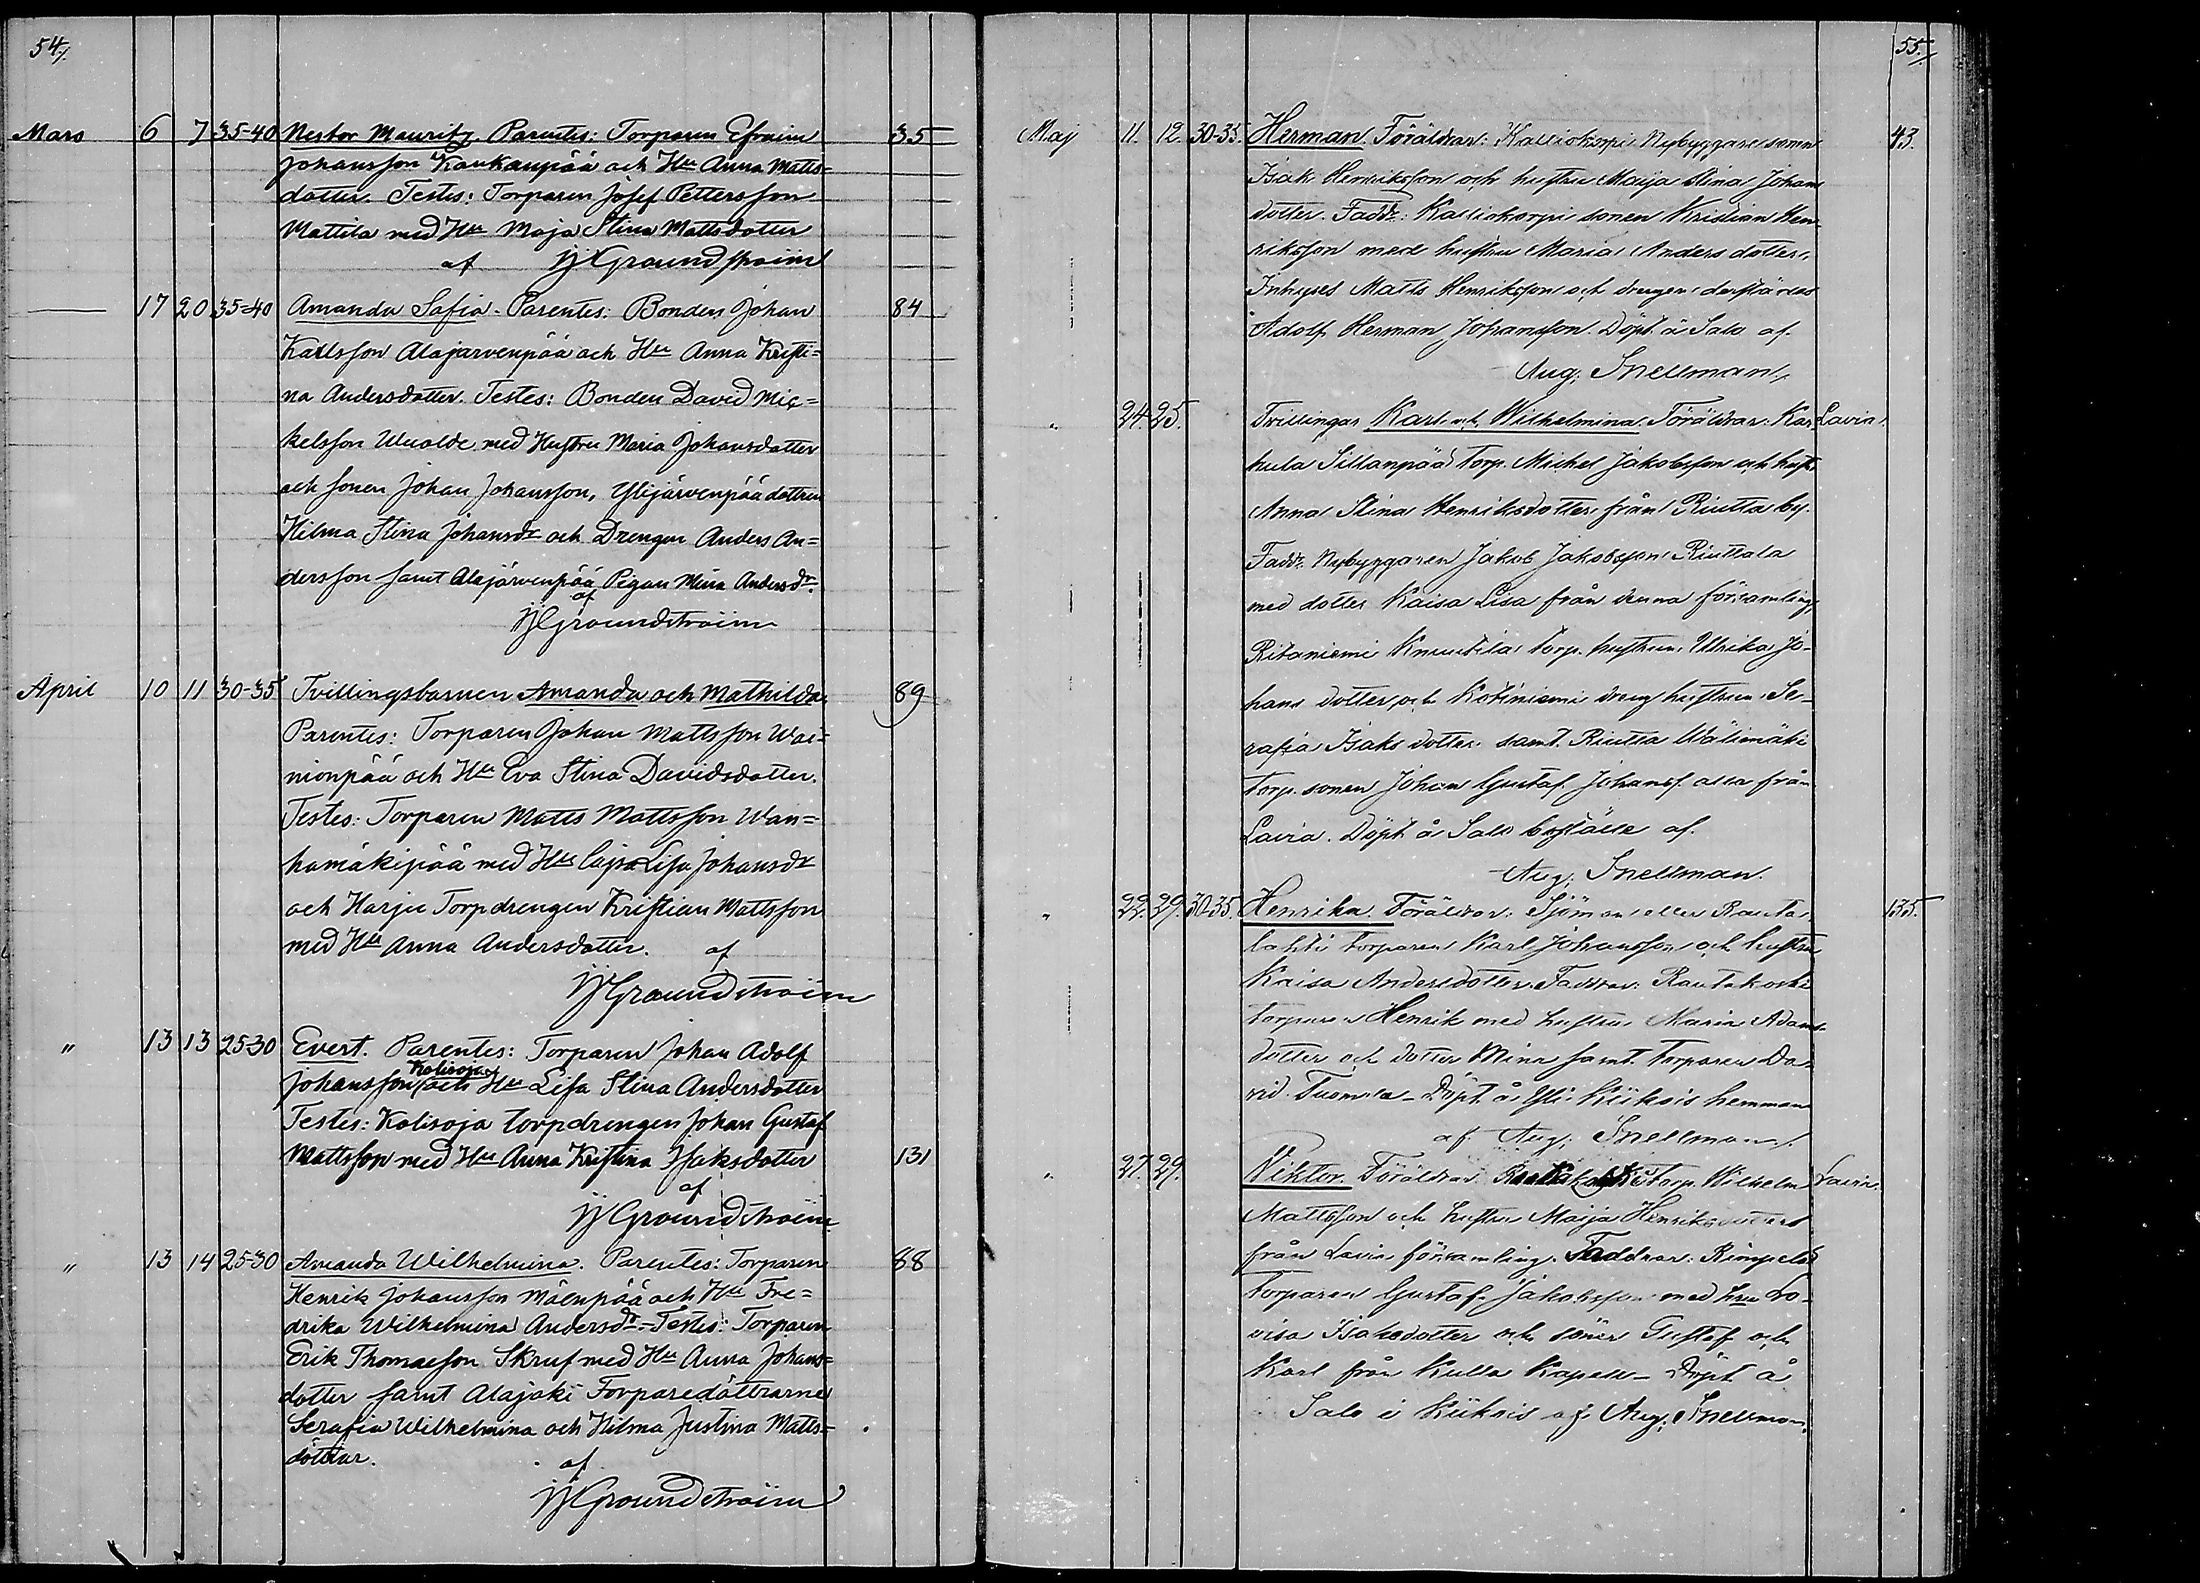 54/.
Mars 6 7 35-40 Nestor Mauritz Parentes: Torparen Efraim 35
Johansson Kaukanpää och Hu Anna Matts=
dotter. Testes: Torparen Josef Pettersson
Mattila med Hu Maja Stina Mattsdotter
af JJGroundstroim
— 17 20 35-40 Amanda Safia. Parentes: Bonden Johan 84
Karlsson Alajarvenpää och Hu Anna Kristi=
na Andersdotter. Testes: Bonden David Mic=
kelsson Wuolde med Hustru Maria Johansdotter
och sonen Johan Johansson, Ylijärvenpää dottren
Hilma Stina Johansdr och Drengen Anders An=
dersson samt Alajärvenpää Pigan Mina Andersdr.
af
JJGroundstroim
April 10 11 30-35 Tvillingsbarnen Amanda och Mathilda 89
Parentes: Torparen Johan Mattsson Wai=
nionpää och Hu Eva Stina Davidsdotter.
Testes: Torparen Matts Mattsson Wan=
hamäkipää med Hu Cajsa Lisa Johansdr
och Harju Torpdrengen Kristian Mattsson
med Hu Anna Andersdotter. af
JJGroundstroim
" 13 13 25-30 Evert. Parentes: Torparen Johan Adolf
Kolisoja
Johansson och Hu Lisa Stina Andersdotter
Testes: Kolisoja torpdrengen Johan Gustaf
Mattsson med Hu Anna Kristina Isaksdotter 131
af
JJGroundstroim
" 13 14 25-30 Amanda Wilhelmina. Parentes: Torparen 88
Henrik Johansson Mäenpää och Hu Fre=
drika Wilhelmina Andersdr.- Testes: Torparen
Erik Thomasson Skruf med Hu Anna Johans=
dotter samt Alajoki Torparedöttrarne
Serafia Wilhelmina och Hilma Justina Matts=
döttrar. af
JJGroundstroim
55/.
Maj 11. 12. 30-35. Herman. Föräldrar: Kalliokorpi Nybyggare sonen 43.
Isak Henriksson och hustru Maija Stina Johans
dotter. Fadd: Kalliokorpi sonen Kristian Hen
riksson med hustru Maria Anders dotter,
Inhyses Matts Henriksson och drengen derstädes
Adolf Herman Johansson. Döpt å Salo af.
Aug; Snellman.
" 24. 25. Tvillingar Karl och Wilhelmina. Föräldrar: Kar Lavia.
hula Sillanpää torp. Mickel Jakobsson och hustr
Anna Stina Henriksdotter från Riutta by.
Fadd: Nybyggaren Jakob Jakobsson Riuttala
med dotter Kaisa Lisa från denna församling,
Ritaniemi Knuutila torp. hustrun Ulrika Jo-
hans dotter och Kotiniemi dreng hustrun Se-
rafia Isaks dotter samt Riutta Wälimäki
torp. sonen Johan Gustaf Johanss. alla från
Lavia. Döpt å Salo boställe af.
Aug; Snellman.
" 22. 29. 30-35. Henrika. Föräldrar: Sjöman eller Ranta 135.
lahti torparen Karl Johansson och hustru
Kaisa Andersdotter. Faddrar: Rautakoski
torparen Henrik med hustru Maria Adams
dotter och dotter Mina samt torparen Da-
vid Tuomola - Döpt å Yli Kiikois hemman
af Aug; Snellman.
" 27. 29. Viktor. Föräldrar: Torp. Wilhelm Lavia.
Mattsson och hustru Maija Henriksdotter
från Lavia församling. Faddrar: Rimpelä
torparen Gustaf Jakobsson med hru Lo-
visa Isaksdotter och söner Gustaf och
Karl från Kulla Kapell - Döpt å
Salo i Kiikois af Aug; Snellman.